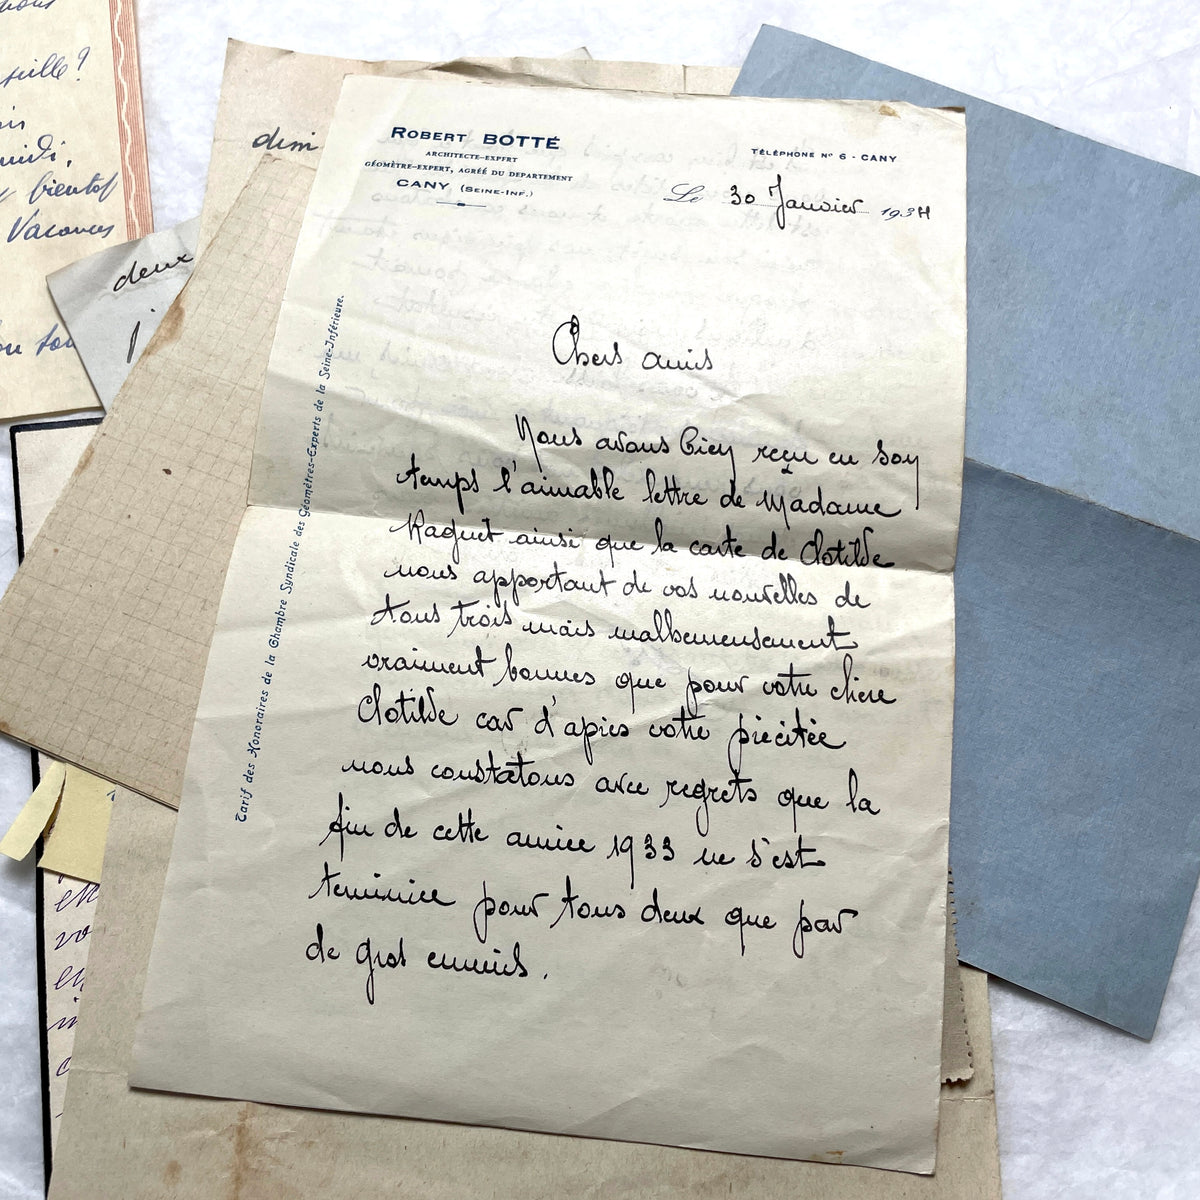 Robert BOTTÉ
ARCHITECTE-EXPERT
GÉOMÈTRE-EXPERT, AGRÉÉ DU DEPARTEMENT
CANY (SEINE-INF.)
TÉLÉPHONE N° 6 - CANY
Le 30 Janvier 1934
Tarif des Honoraires de la Chambre Syndicale des Géomètres-Experts de la Seine-Inférieure.
Chers amis
Nous avons bien reçu en son
temps l'aimable lettre de Madame
Raguet ainsi que la carte de Clotilde
nous apportant de vos nouvelles de
tous trois mais malheureusement
vraiment bonnes que pour votre chère
Clotilde car d'après votre précitée
nous constatons avec regrets que la
fin de cette année 1933 ne s'est
terminée pour tous deux que par
de gros ennuis.
dim
deux
bientot
Vacances